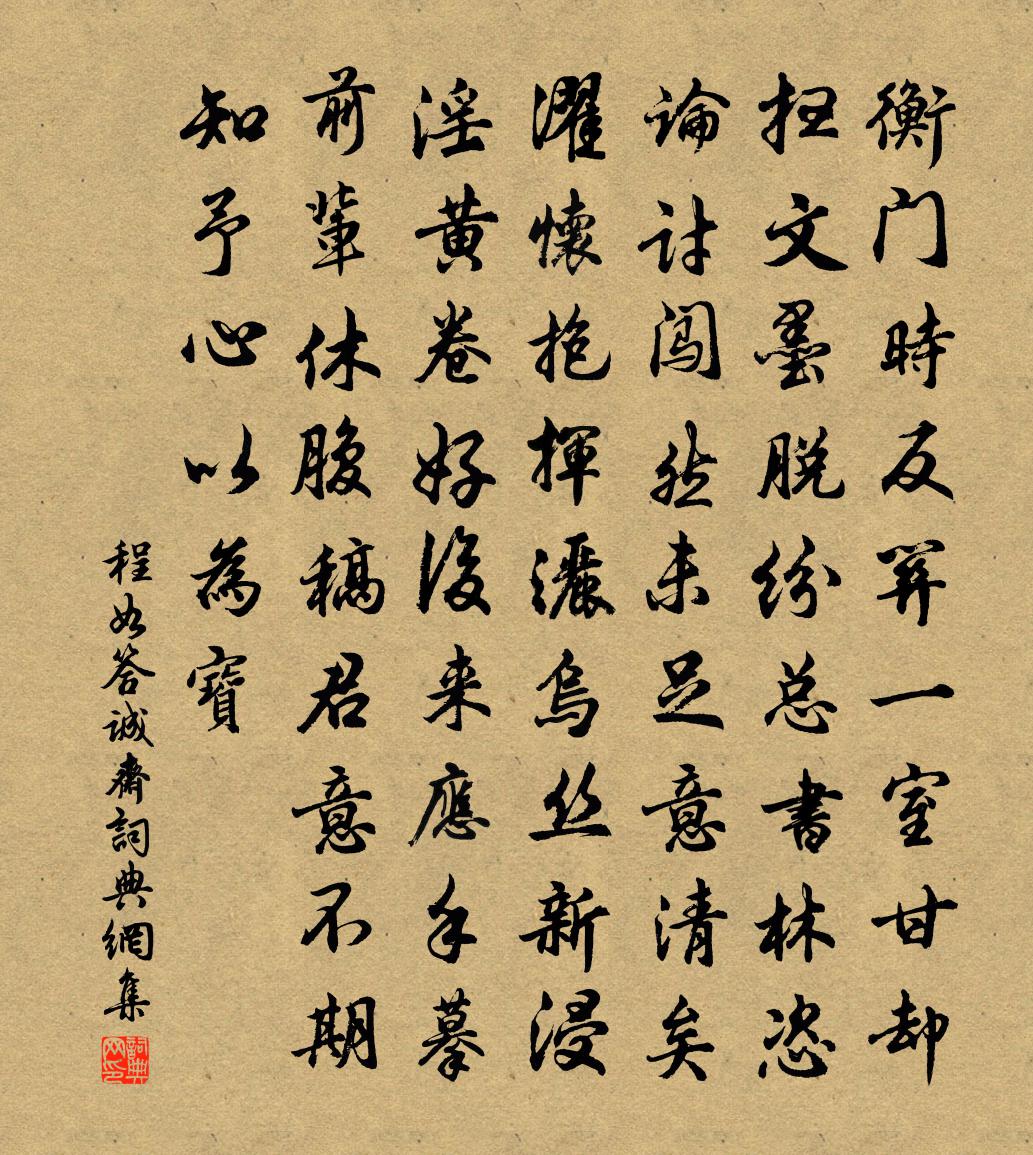 衡门時反關一室甘却
扫文墨脱纷总書林恣
論討闯然未足意清矣
濯懷抱揮灑烏丝新浸
淫黄卷好後来應手摹
前輩休腹稿君意不期
知予心以為寶
程如答誠齋詞典網集
詞典网印